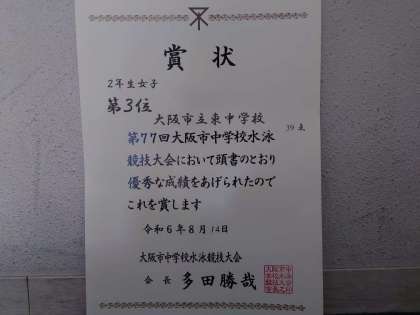 賞状
2年生女子
第3位
大阪市立東中学校
39点
第77回大阪市中学校水泳
競技大会において頭書のとおり
優秀な成績をあげられたので
これを賞します
令和6年8月14日
大阪市中学校水泳競技大会
会長 多田勝哉